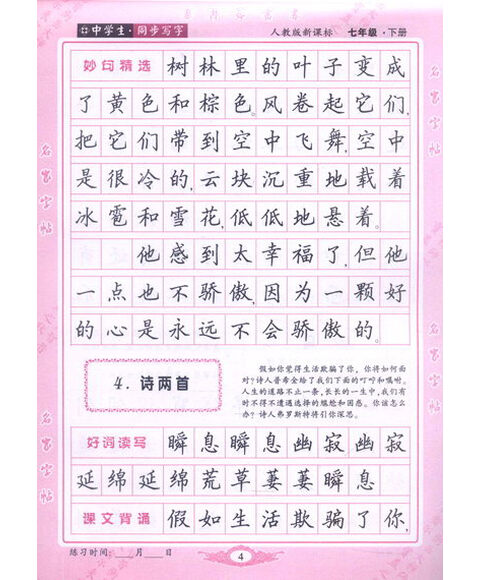 中学生·同步写字
人教版新课标 七年级·下册
妙句精选 树林里的叶子变成
了黄色和棕色。风卷起它们,
把它们带到空中飞舞,空中
是很冷的,云块沉重地载着
冰雹和雪花,低低地悬着。
他感到太幸福了,但他
一点也不骄傲,因为一颗好
的心是永远不会骄傲的。
4. 诗两首
假如你觉得生活欺骗了你,你将如何面
对?诗人普希金给了我们下面的叮咛和嘱咐。
人生的道路不止一条,长长的一生中,我们有
时不得不遭遇选择的尴尬和困惑。你该怎么
办?诗人弗罗斯特将引你深思。
好词读写 瞬息瞬息幽寂幽寂
延绵延绵荒草萋萋瞬息
课文背诵 假如生活欺骗了你,
练习时间: 月 日
4
名家字帖
名家字帖
名家字帖
名家字帖